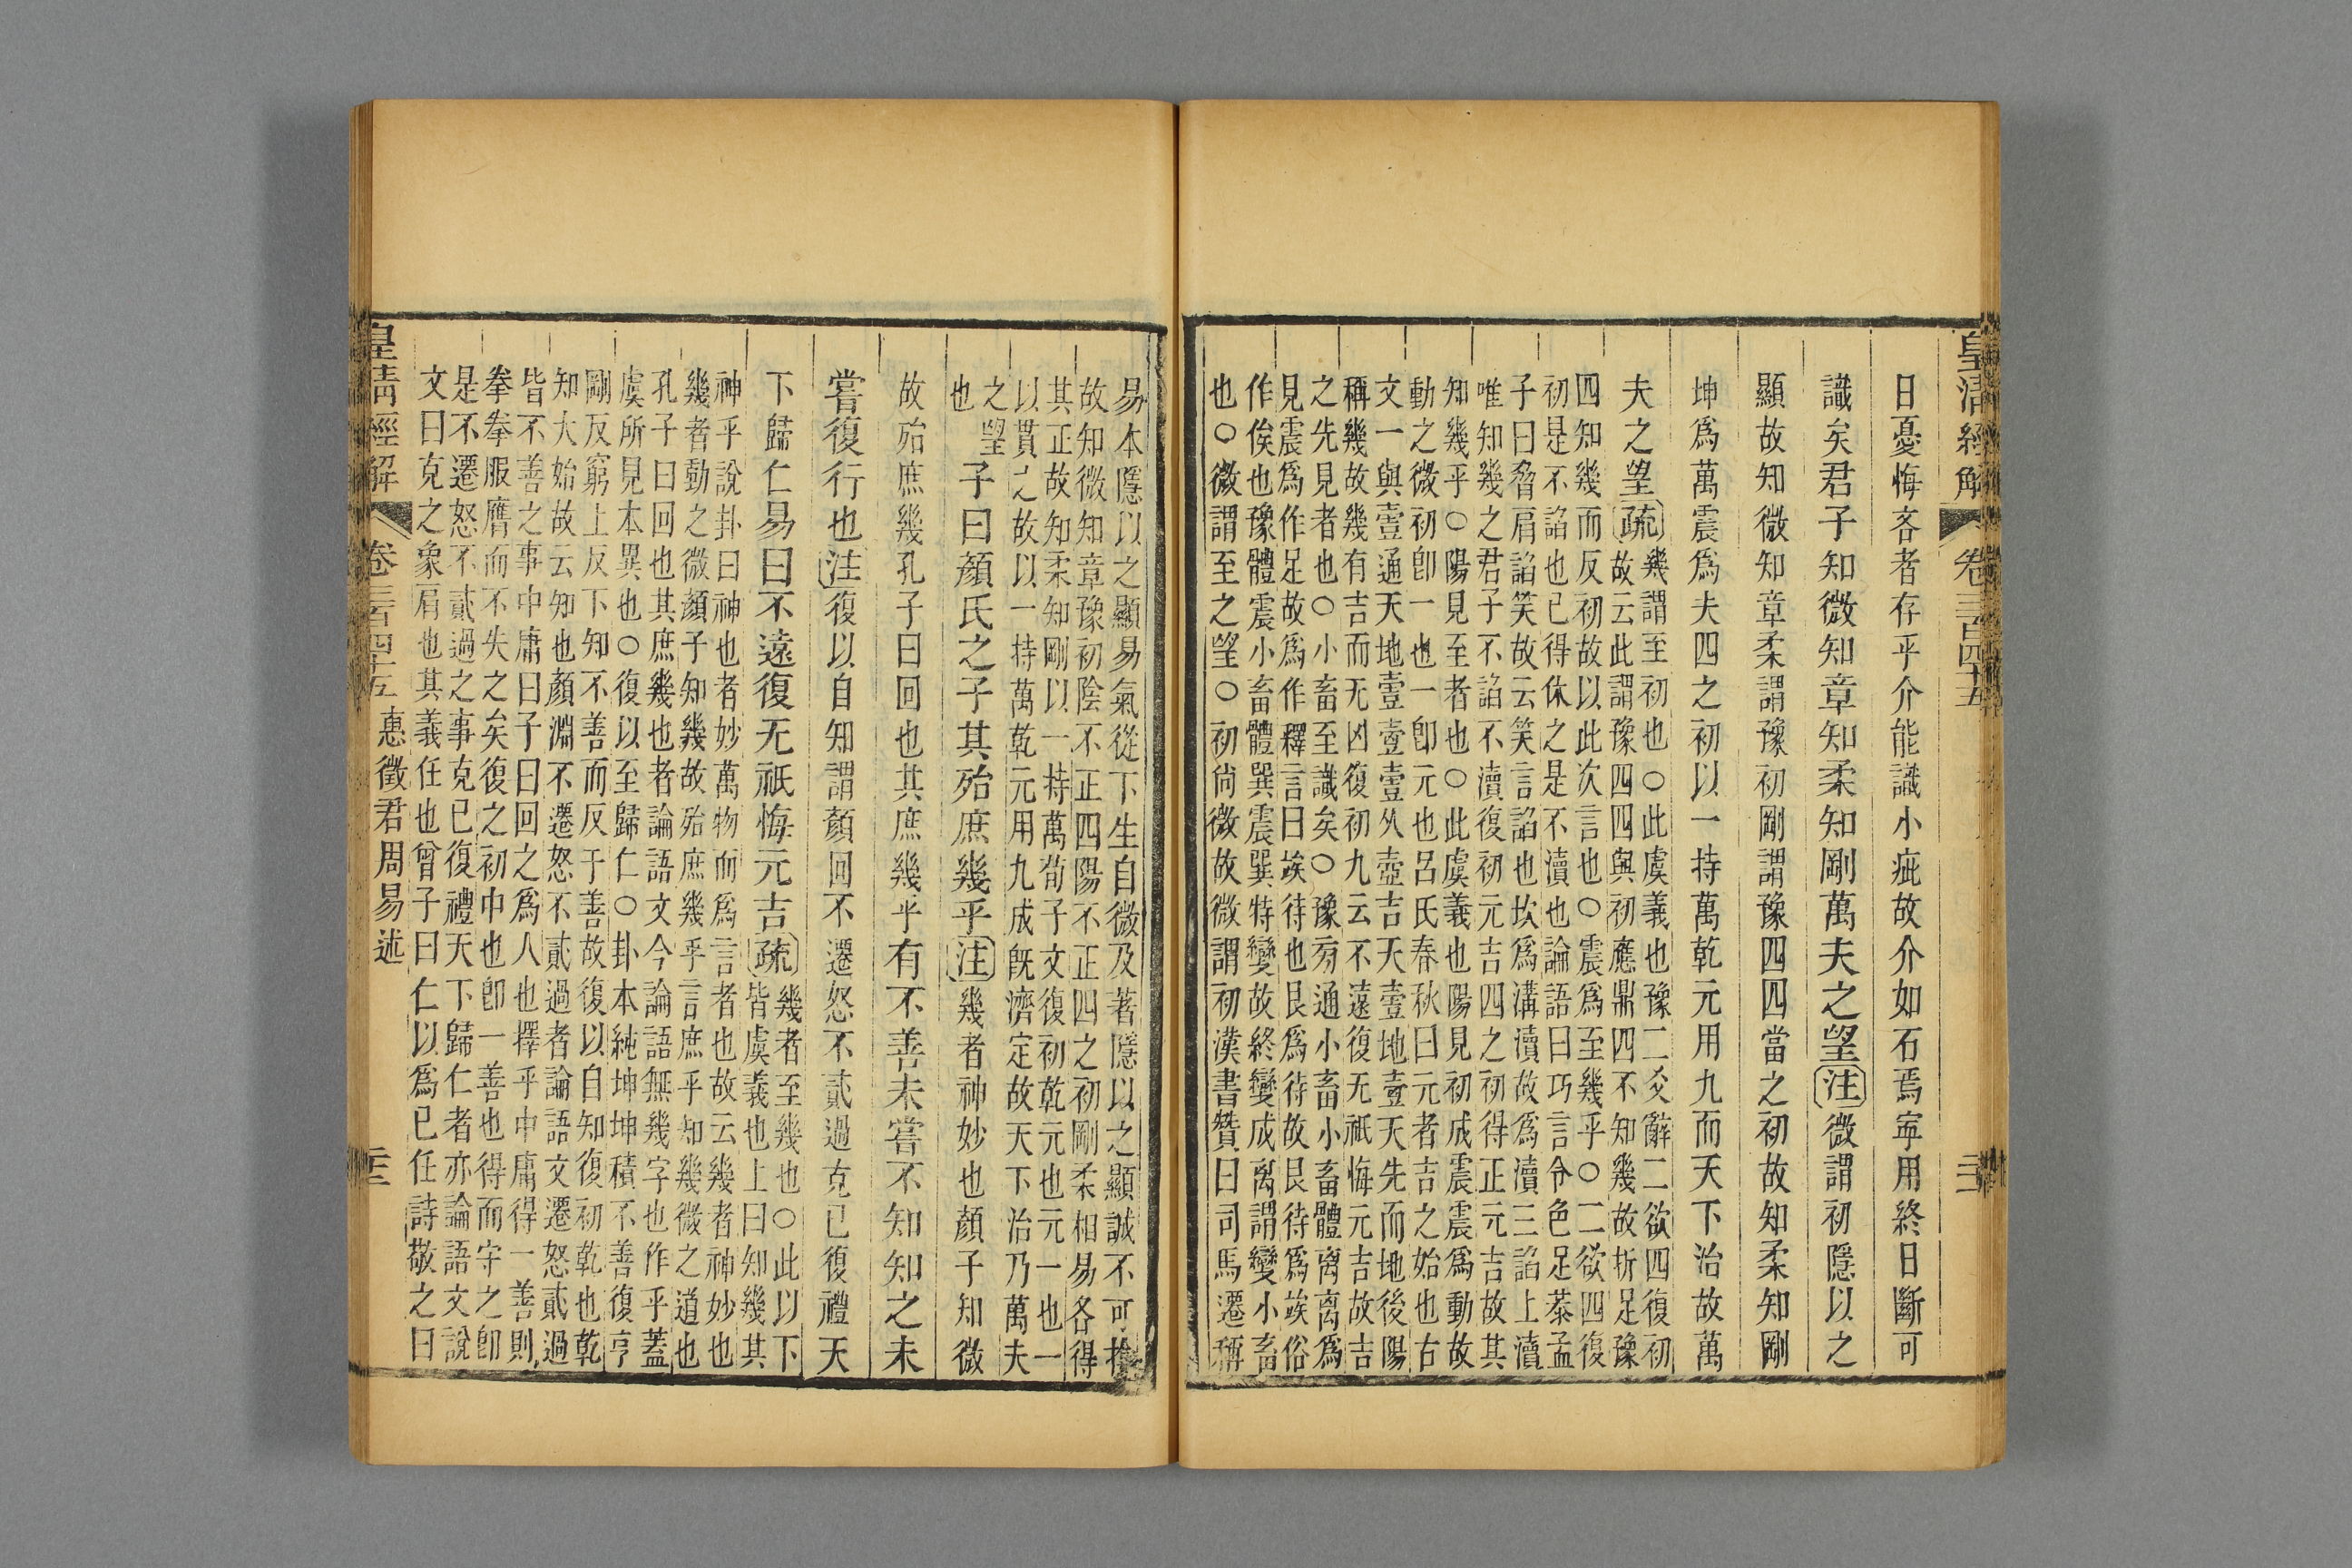 皇清經解
卷三百四十五
日憂悔吝者存乎介能識小疵故介如石焉寧用終日斷可
識矣君子知微知章知柔知剛萬夫之望注微謂初隱以之
顯故知微知章柔謂豫初剛謂豫四四當之初故知柔知剛
坤爲萬震爲夫四之初以一持萬乾元用九而天下治故萬
夫之望疏
幾謂至初也○此虞義也豫二爻辭二欲四復初
故云此謂豫四四與初應鼎四不知幾故折足豫
四知幾而反初故以此次言也○震爲至幾乎○二欲四復
初是不諂也已得休之是不瀆也論語曰巧言令色足恭孟
子曰脅肩諂笑故云笑言諂也坎爲溝瀆故爲瀆三諂上瀆
唯知幾之君子不諂不瀆復初元吉四之初得正元吉故其
知幾乎○陽見至者也○此虞義也陽見初成震震爲動故
動之微初卽一也一卽元也呂氏春秋曰元者吉之始也古
文一與壹通天地壹壹壹从壺吉天壹地壹天先而地後陽
稱幾故幾有吉而无凶復初九云不遠復无祇悔元吉故吉
之先見者也○小畜至識矣○豫旁通小畜小畜體離离爲
見震爲作足故爲作釋言曰竢待也艮爲待故艮待爲竢俗
作俟也豫體震小畜體巽震巽特變故終變成离謂變小畜
也○微謂至之望○初尙微故微謂初漢書贊曰司馬遷稱
易本隱以之顯易氣從下生自微及著隱以之顯誠不可揜
故知微知章豫初陰不正四陽不正四之初剛柔相易各得
其正故知柔知剛以一持萬荀子文復初乾元也元一也一
以貫之故以一持萬乾元用九成旣濟定故天下治乃萬夫
之望
也
子曰顏氏之子其殆庶幾乎注幾者神妙也顏子知微
故殆庶幾孔子曰回也其庶幾乎有不善未嘗不知知之未
嘗復行也注復以自知謂顏回不遷怒不貳過克已復禮天
下歸仁易曰不遠復无祇悔元吉疏
幾者至幾也○此以下
皆虞義也上曰知幾其
神乎說卦曰神也者妙萬物而爲言者也故云幾者神妙也
幾者動之微顏子知幾故殆庶幾乎言庶乎知幾微之道也
孔子曰回也其庶幾也者論語文今論語無幾字也作乎蓋
虞所見本異也○復以至歸仁○卦本純坤坤積不善復亨
剛反窮上反下知不善而反于善故復以自知復初乾也乾
知大始故云知也顏淵不遷怒不貳過者論語文遷怒貳過
皆不善之事中庸曰子曰回之爲人也擇乎中庸得一善則
拳拳服膺而不失之矣復之初中也卽一善也得而守之卽
是不遷怒不貳過之事克已復禮天下歸仁者亦論語文說
文曰克之象肩也其義任也曾子曰仁以爲已任詩敬之曰
皇清經解
卷三百四十五
惠徵君周易述